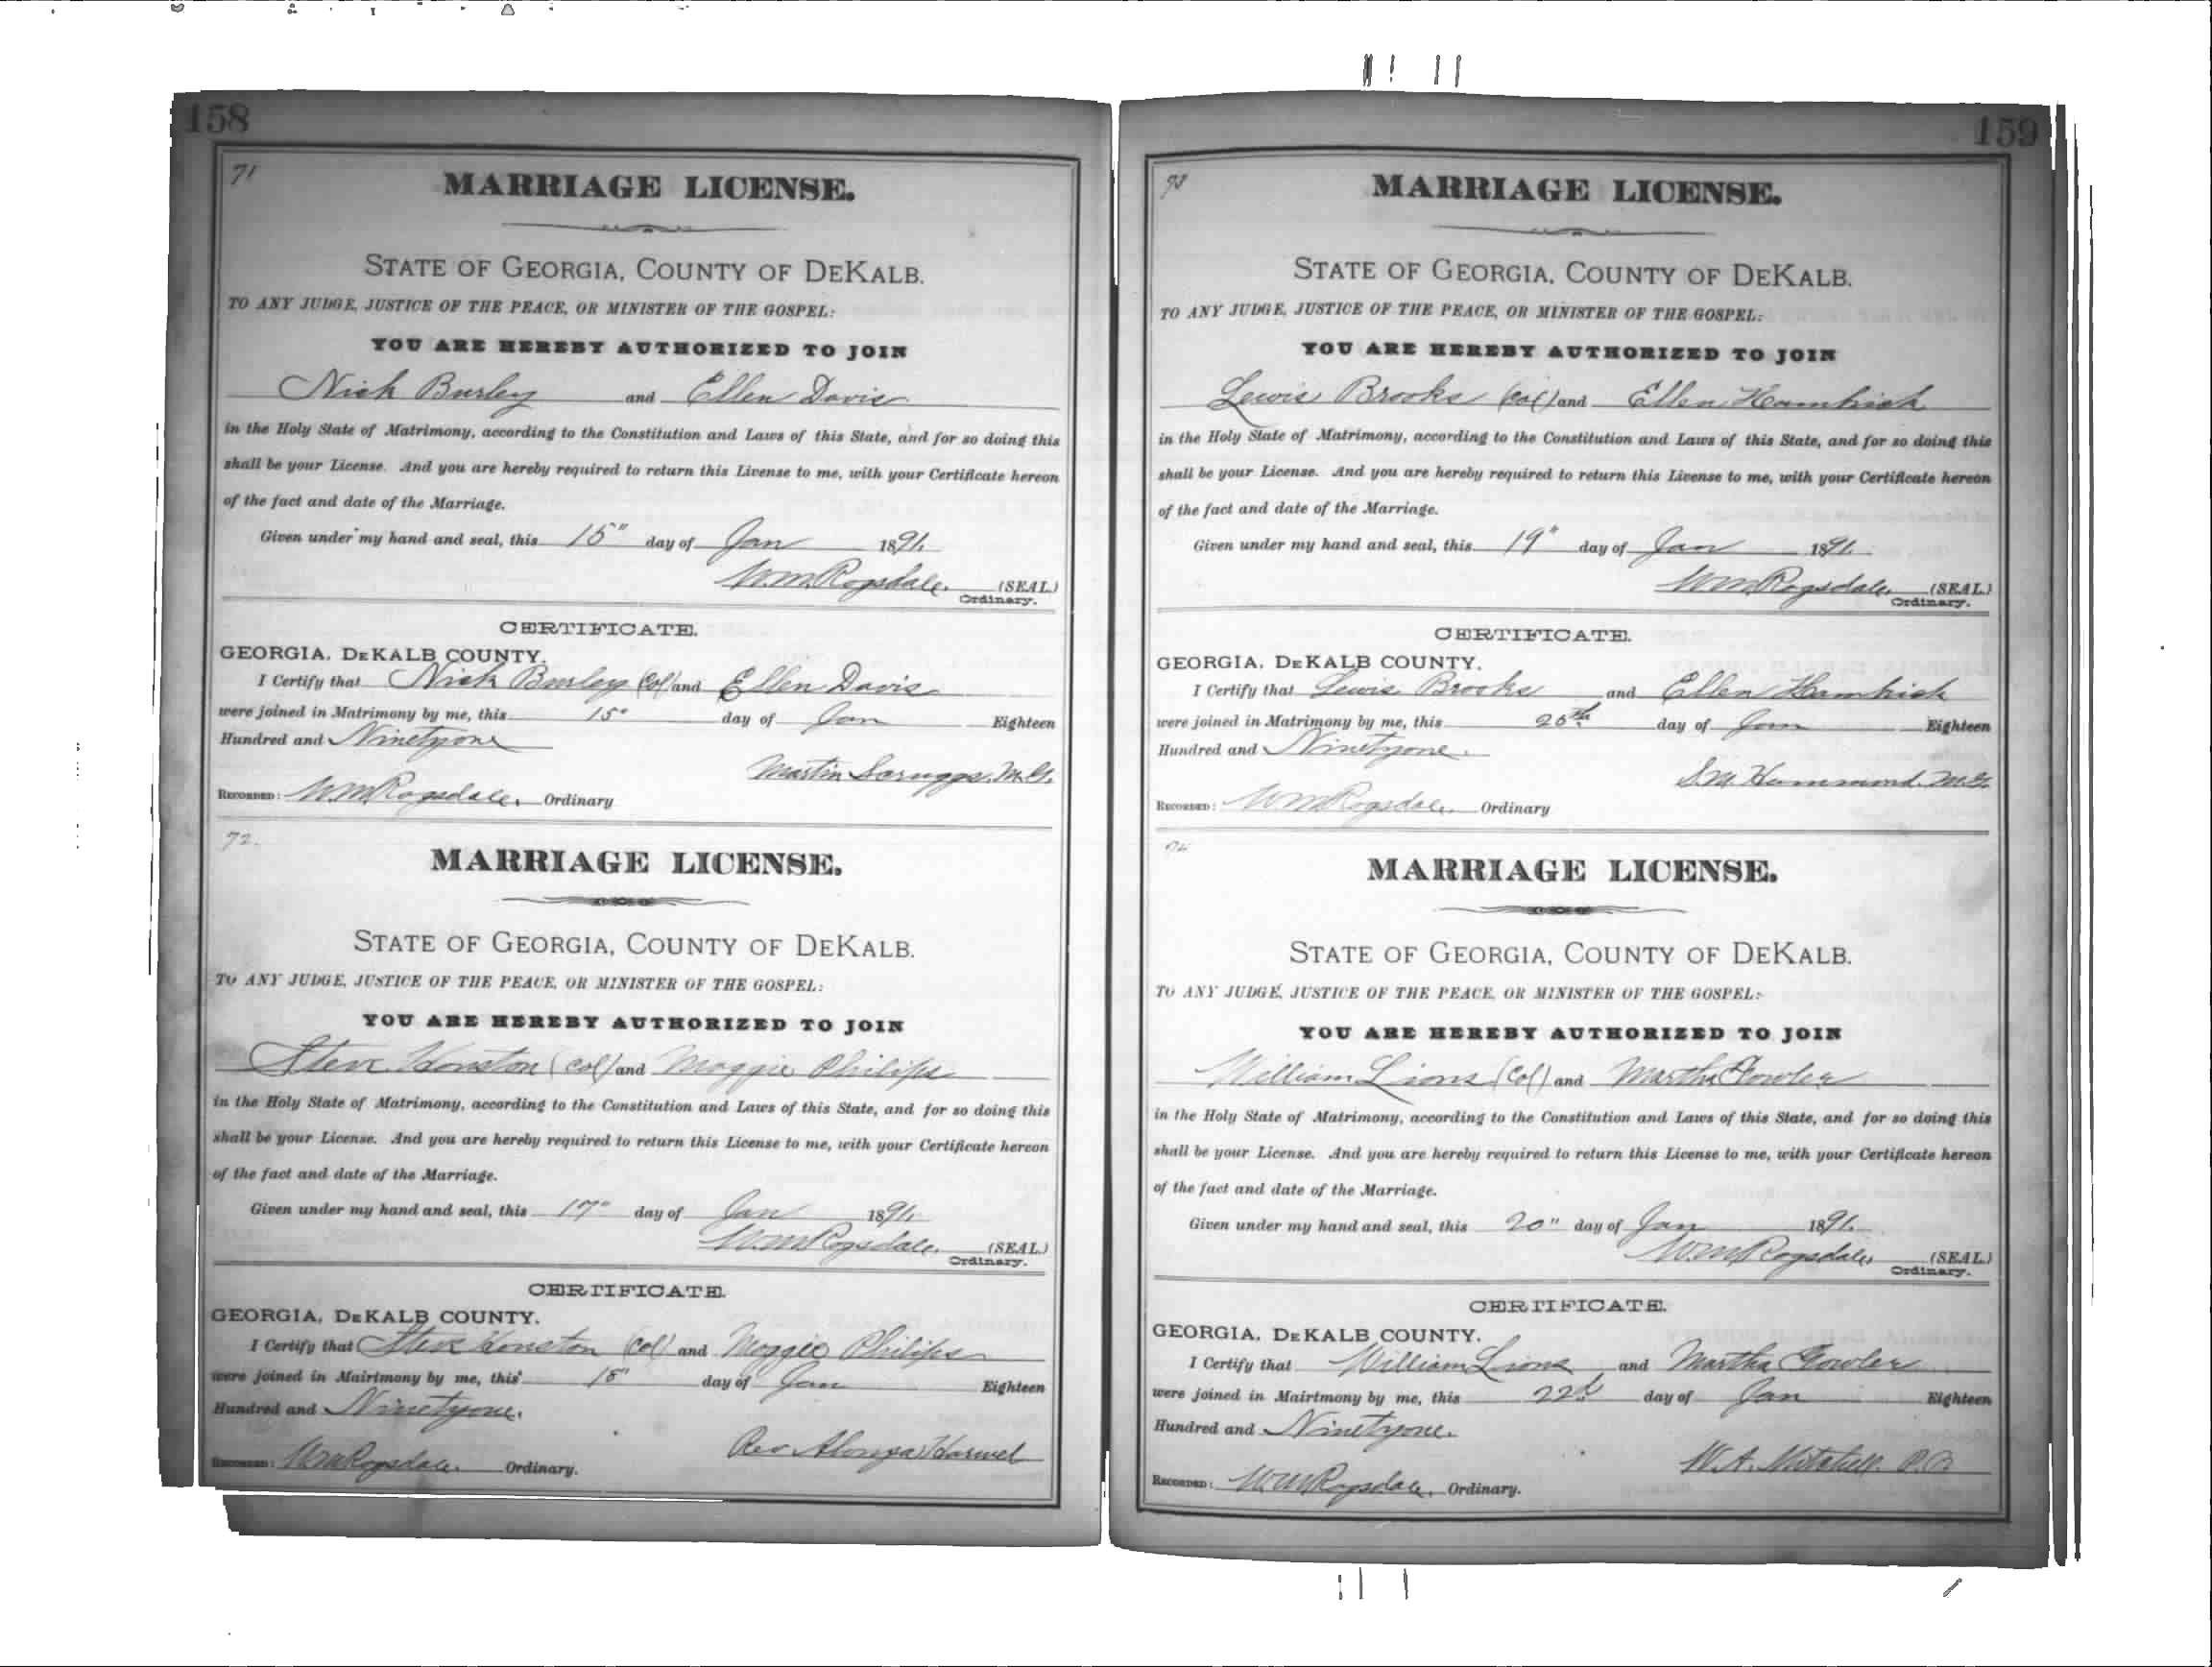 158
71
MARRIAGE LICENSE.
STATE OF GEORGIA, COUNTY OF DEKALB.
TO ANY JUDGE, JUSTICE OF THE PEACE, OR MINISTER OF THE GOSPEL:
YOU ARE HEREBY AUTHORIZED TO JOIN
Nick Burley and Ellen Davis
in the Holy State of Matrimony, according to the Constitution and Laws of this State, and for so doing this
shall be your License. And you are hereby required to return this License to me, with your Certificate hereon
of the fact and date of the Marriage.
Given under my hand and seal, this 15" day of Jan 1891.
W.M. Ragsdale. (SEAL)
Ordinary.
CERTIFICATE.
GEORGIA, DEKALB COUNTY.
I Certify that Nick Burley (Col) and Ellen Davis
were joined in Matrimony by me, this 15" day of Jan Eighteen
Hundred and Ninetyone
Martin Scruggs. M.G.
RECORDED: W.M. Ragsdale. Ordinary
72.
MARRIAGE LICENSE.
STATE OF GEORGIA, COUNTY OF DEKALB.
TO ANY JUDGE, JUSTICE OF THE PEACE, OR MINISTER OF THE GOSPEL:
YOU ARE HEREBY AUTHORIZED TO JOIN
Steve Houston (Col) and Maggie Philips
in the Holy State of Matrimony, according to the Constitution and Laws of this State, and for so doing this
shall be your License. And you are hereby required to return this License to me, with your Certificate hereon
of the fact and date of the Marriage.
Given under my hand and seal, this 17" day of Jan 1891.
W.M. Ragsdale. (SEAL)
Ordinary.
CERTIFICATE.
GEORGIA, DEKALB COUNTY.
I Certify that Steve Houston (Col) and Maggie Philips
were joined in Mairtmony by me, this 18" day of Jan Eighteen
Hundred and Ninetyone.
Rev Alonza Harwel
RECORDED: W.M. Ragsdale. Ordinary.
159
73
MARRIAGE LICENSE.
STATE OF GEORGIA, COUNTY OF DEKALB.
TO ANY JUDGE, JUSTICE OF THE PEACE, OR MINISTER OF THE GOSPEL:
YOU ARE HEREBY AUTHORIZED TO JOIN
Lewis Brooks (Col) and Ellen Hambrick
in the Holy State of Matrimony, according to the Constitution and Laws of this State, and for so doing this
shall be your License. And you are hereby required to return this License to me, with your Certificate hereon
of the fact and date of the Marriage.
Given under my hand and seal, this 19" day of Jan 1891.
W.M. Ragsdale. (SEAL)
Ordinary.
CERTIFICATE.
GEORGIA, DEKALB COUNTY.
I Certify that Lewis Brooks and Ellen Hambrick
were joined in Matrimony by me, this day of Jan Eighteen
Hundred and Ninetyone.
S.M. Hammond. M.G.
RECORDED: W.M. Ragsdale. Ordinary
MARRIAGE LICENSE.
STATE OF GEORGIA, COUNTY OF DEKALB.
TO ANY JUDGE, JUSTICE OF THE PEACE, OR MINISTER OF THE GOSPEL:
YOU ARE HEREBY AUTHORIZED TO JOIN
William Lions (Col) and Martha Fowler
in the Holy State of Matrimony, according to the Constitution and Laws of this State, and for so doing this
shall be your License. And you are hereby required to return this License to me, with your Certificate hereon
of the fact and date of the Marriage.
Given under my hand and seal, this 20" day of Jan 1891.
W.M. Ragsdale. (SEAL)
Ordinary.
CERTIFICATE.
GEORGIA, DEKALB COUNTY.
I Certify that William Lions and Martha Fowler
were joined in Mairtmony by me, this 22d day of Jan Eighteen
Hundred and Ninetyone.
W.A. Mitchell.
RECORDED: W.M. Ragsdale. Ordinary.